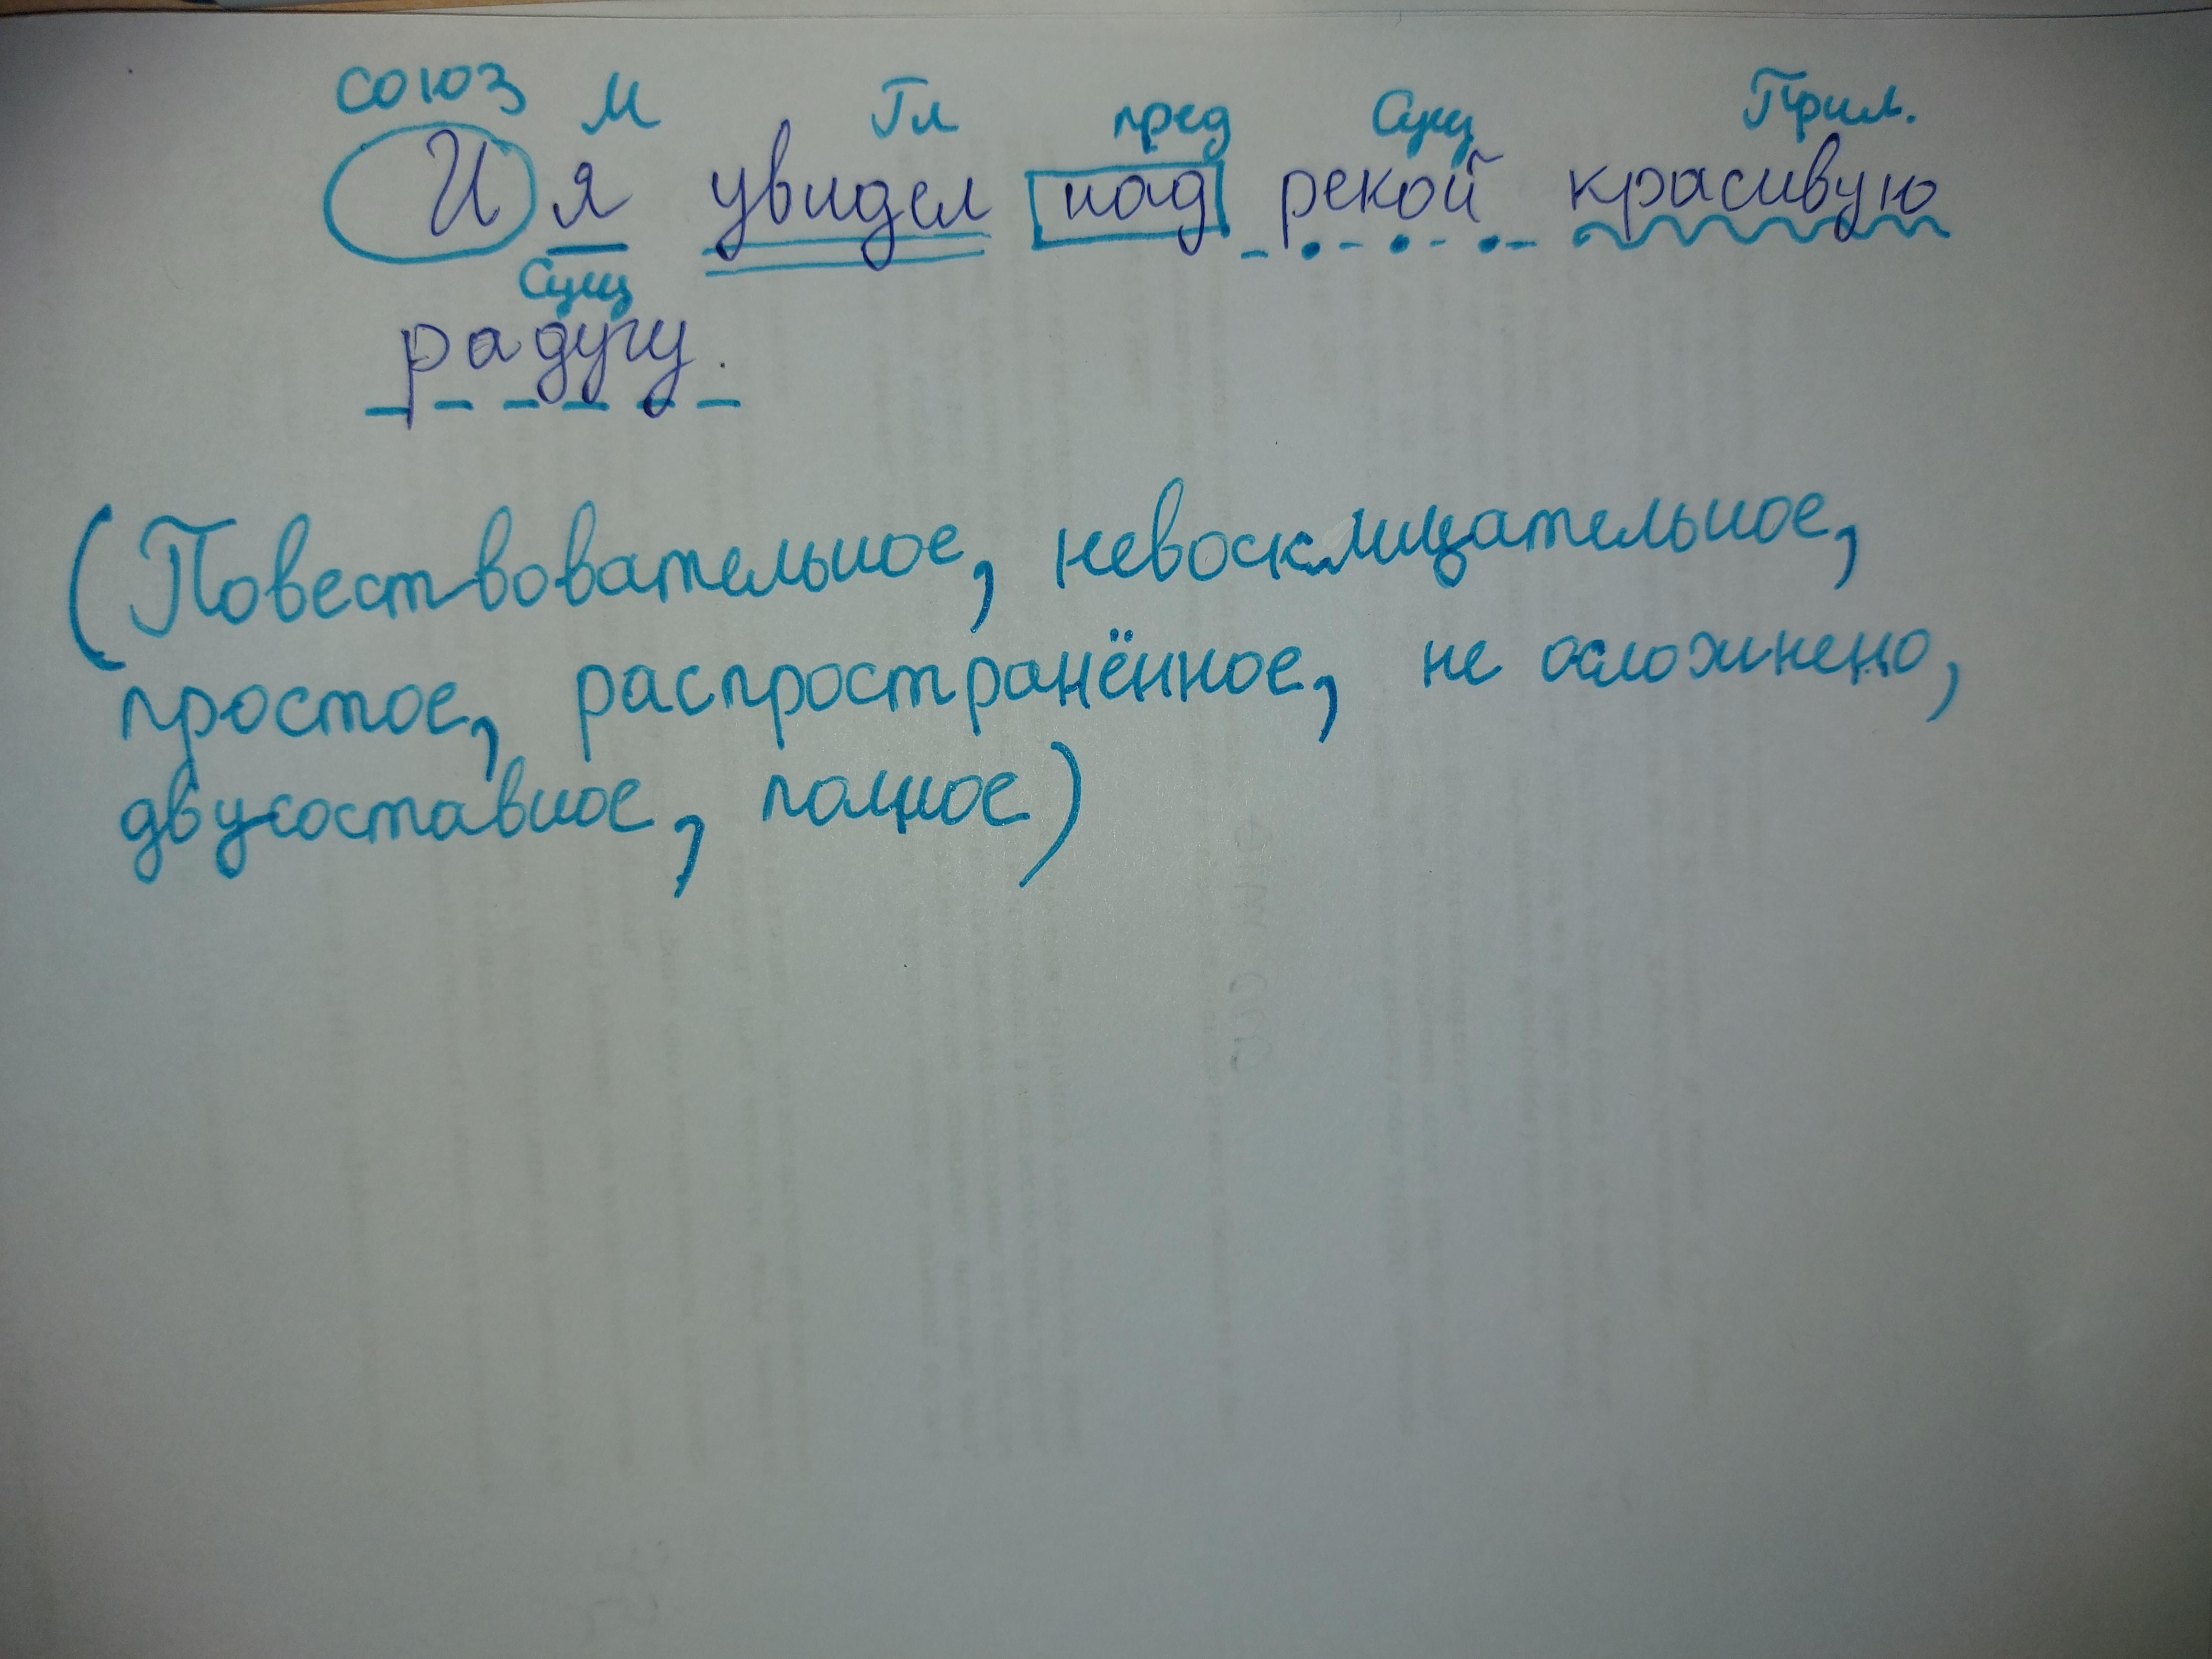 союз М Гл пред Сущ Прил.
И я увидел над рекой красивую
Сущ
радугу.
(Повествовательное, невосклицательное,
простое, распространённое, не осложнено,
двусоставное, полное)